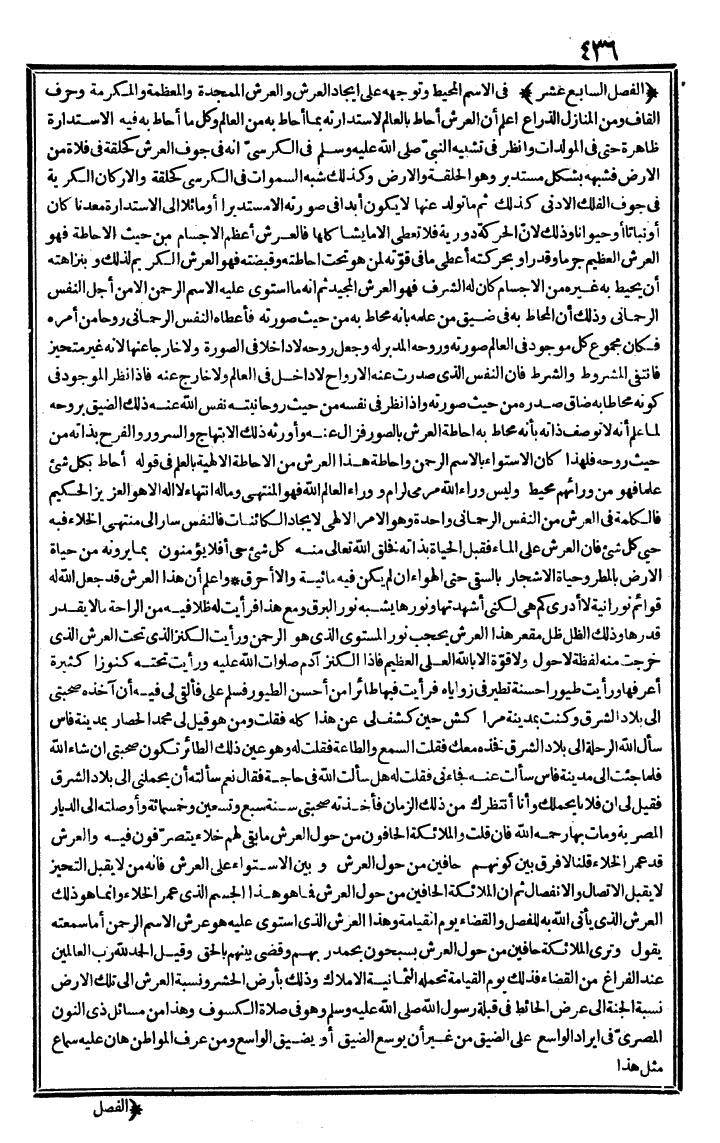 ٤٣٦
﴿الفصل السابع عشر﴾ فى الاسم المحيط وتوجهه على ايجاد العرش والعرش الممجدة والمعظمة والمكرمة وحرف
القاف ومن المنازل الذراع اعلم أن العرش أحاط بالعالم لاستدارته بما أحاط به من العالم وكل ما أحاط به فيه الاستدارة
ظاهرة حتى فى المولدات وانظر فى تشبيه النبىّ صلى الله عليه وسلم فى الكرسىّ انه فى جوف العرش كحلقة فى فلاة من
الارض فشبهه بشكل مستدير وهو الحلقة والارض وكذلك شبه السموات فى الكرسى كحلقة والاركان الكرية
فى جوف الفلك الادنى كذلك ثم ما تولد عنها لا يكون أبدا فى صورته الا مستديرا أو مائلا الى الاستدارة معدنا كان
أو نباتا أو حيوانا وذلك لانّ الحركة دورية فلا تعطى الا ما يشا كلها فالعرش أعظم الاجسام من حيث الاحاطة فهو
العرش العظيم جرما وقدرا وبحركته أعطى ما فى قوّته لمن هو تحت احاطته وقبضته فهو العرش الكريم لذلك وبنزاهته
أن يحيط به غيره من الاجسام كان له الشرف فهو العرش المجيد ثم انه ما استوى عليه الاسم الرحمن الا من أجل النفس
الرحمانى وذلك أن المحاط به فى ضيق من علمه بانه محاط به من حيث صورته فأعطاه النفس الرحمانى روحا من أمره
فكان مجموع كل موجود فى العالم صورته وروحه المدبر له وجعل روحه لا داخلا فى الصورة ولا خارجا عنها لانه غير متحيز
فانتفى المشروط والشرط فان النفس الذى صدرت عنه الارواح لا داخل فى العالم ولا خارج عنه فاذا نظر الموجود فى
كونه محاطا به ضاق صدره من حيث صورته واذا نظر فى نفسه من حيث روحانيته نفس الله عنه ذلك الضيق بروحه
لما علم أنه لا توصف ذاته بأنه محاط به احاطة العرش بالصور فزال عنه وأورثه ذلك الابتهاج والسرور والفرح بذاته من
حيث روحه فلهذا كان الاستواء بالاسم الرحمن واحاطة هذا العرش من الاحاطة الالهية بالعلم فى قوله أحاط بكل شئ
علما فهو من ورائهم محيط وليس وراء الله مرمى لرام و وراء العالم الله فهو المنتهى وماله انتهاء لا اله الا هو العزيز الحكيم
فالكلمة فى العرش من النفس الرحمانى واحدة وهو الامر الالهى لا يجاد الكائنات فالنفس سار الى منتهى الخلاء فبه
حيى كل شئ فان العرش على الماء فقبل الحياة بذاته فخلق الله تعالى منه كل شئ حى أفلا يؤمنون بما يرونه من حياة
الارض بالمطر وحياة الاشجار بالسقى حتى الهواء ان لم يكن فيه مائية والا أحرق * واعلم أن هذا العرش قد جعل الله له
قوائم نورانية لا أدرى كم هى لكنى أشهدتها ونورها يشبه نور البرق ومع هذا فرأيت له ظلا فيه من الراحة ما لا يقدر
قدرها وذلك الظل ظل مقعر هذا العرش يحجب نور المستوى الذى هو الرحمن ورأيت الكنز الذى تحت العرش الذى
خرجت منه لفظة لا حول ولا قوّة الا بالله العلى العظيم فاذا الكنز آدم صلوات الله عليه ورأيت تحته كنوزا كثيرة
أعرفها ورأيت طيورا حسنة تطير فى زواياه فرأيت فيها طائرا من أحسن الطيور فسلم على فألقى لى فيه أن آخذه صحبتى
الى بلاد الشرق وكنت بمدينة مرا كش حين كشف لى عن هذا كله فقلت ومن هو قيل لى محمد الحصار بمدينة فاس
سأل الله الرحلة الى بلاد الشرق فخذه معك فقلت السمع والطاعة فقلت له وهو عين ذلك الطائر تكون صحبتى ان شاء الله
فلما جئت الى مدينة فاس سألت عنه فجاءنى فقلت له هل سألت الله فى حاجة فقال نعم سألته أن يحملنى الى بلاد الشرق
فقيل لى ان فلانا يحملك وأنا أنتظرك من ذلك الزمان فأخذته صحبتى سنة سبع وتسعين وخمسمائة وأوصلته الى الديار
المصرية ومات بها رحمه الله فان قلت والملائكة الحافون من حول العرش ما بقى لهم خلاء يتصرّفون فيه والعرش
قد عمر الخلاء قلنا لا فرق بين كونهم حافين من حول العرش و بين الاستواء على العرش فانه من لا يقبل التحيز
لا يقبل الاتصال والانفصال ثم ان الملائكة الحافين من حول العرش فما هو هذا الجسم الذى عمر الخلاء وانما هو ذلك
العرش الذى يأتى الله به للفصل والقضاء يوم القيامة وهذا العرش الذى استوى عليه هو عرش الاسم الرحمن أما سمعته
يقول وترى الملائكة حافين من حول العرش يسبحون بحمد ربهم وقضى بينهم بالحق وقيل الحمد لله رب العالمين
عند الفراغ من القضاء فذلك يوم القيامة تحمله الثمانية الاملاك وذلك بأرض الحشر ونسبة العرش الى تلك الارض
نسبة الجنة الى عرض الحائط فى قبلة رسول الله صلى الله عليه وسلم وهو فى صلاة الكسوف وهذا من مسائل ذى النون
المصرىّ فى ايراد الواسع على الضيق من غير أن يوسع الضيق أو يضيق الواسع ومن عرف المواطن هان عليه سماع
مثل هذا
﴿الفصل